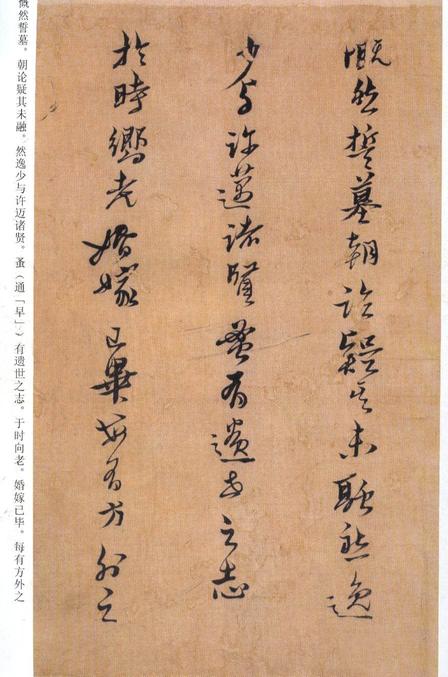 慨然誓墓朝论疑其未融然逸
少与许迈诸贤蚤有遗世之志
於時嚮老婚嫁已畢每有方外之
慨然誓墓。朝论疑其未融。然逸少与许迈诸贤。蚤（通「早」）有遗世之志。于时向老。婚嫁已毕。每有方外之